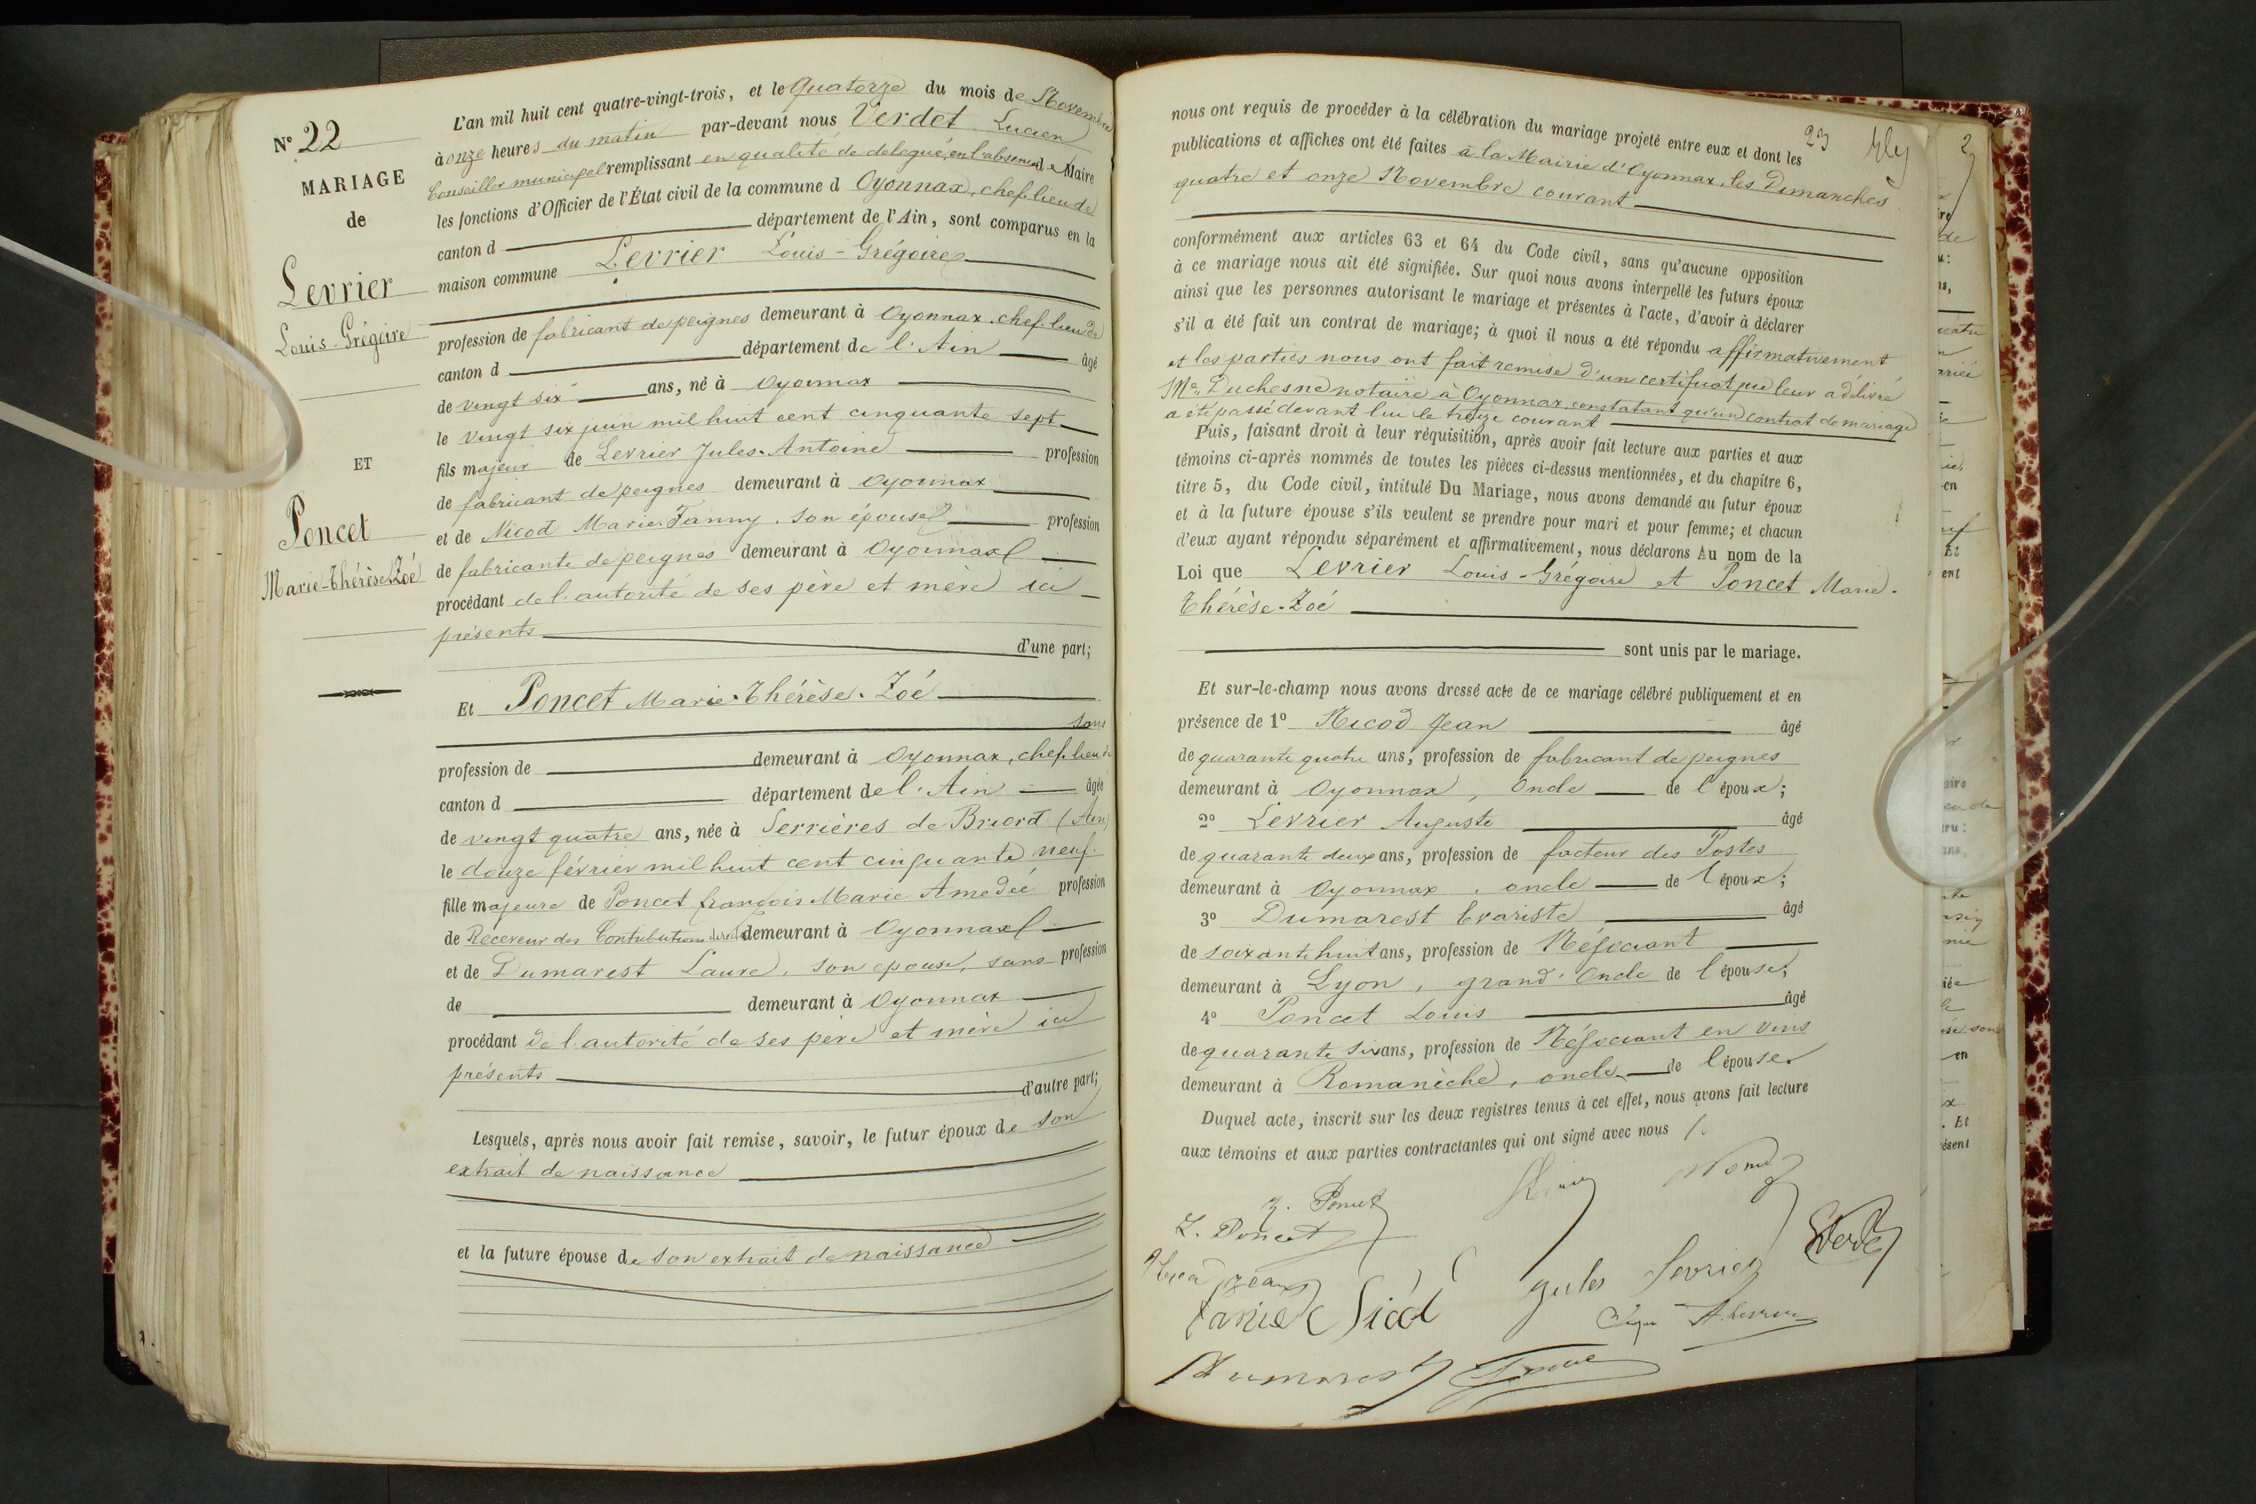 N° 22
MARIAGE
de
Levrier
Louis-Grégoire
ET
Poncet
Marie-Thérèse-Zoé
L'an mil huit cent quatre-vingt-trois, et le Quatorze du mois de Novembre
à onze heures du matin par-devant nous Verdet Lucien
Conseiller municipal remplissant en qualité de délégué, en l'absence de Maire
les fonctions d'Officier de l'État civil de la commune d Oyonnax, chef-lieu de
canton d département de l'Ain, sont comparus en la
maison commune Levrier Louis-Grégoire
profession de fabricant de peignes demeurant à Oyonnax, chef-lieu de
canton d département de l'Ain âgé
de vingt six ans, né à Oyonnax
le vingt six juin mil huit cent cinquante sept
fils majeur de Levrier Jules-Antoine profession
de fabricant de peignes demeurant à Oyonnax
et de Nicod Marie-Fanny, son épouse profession
de fabricante de peignes demeurant à Oyonnax
procédant de l'autorité de ses père et mère ici
présents d'une part;
Et Poncet Marie-Thérèse-Zoé
sans
profession de demeurant à Oyonnax, chef-lieu de
canton d département de l'Ain âgée
de vingt quatre ans, née à Serrières de Briord (Ain)
le douze février mil huit cent cinquante neuf
fille majeure de Poncet françois Marie Amedée profession
de Receveur des Contributions demeurant à Oyonnax
et de Dumarest Laure, son épouse, sans profession
de demeurant à Oyonnax
procédant de l'autorité de ses père et mère ici
présents d'autre part;
Lesquels, après nous avoir fait remise, savoir, le futur époux de son
extrait de naissance
et la future épouse de son extrait de naissance
23
nous ont requis de procéder à la célébration du mariage projeté entre eux et dont les
publications et affiches ont été faites à la Mairie d'Oyonnax, les Dimanches
quatre et onze Novembre courant
conformément aux articles 63 et 64 du Code civil, sans qu'aucune opposition
à ce mariage nous ait été signifiée. Sur quoi nous avons interpellé les futurs époux
ainsi que les personnes autorisant le mariage et présentes à l'acte, d'avoir à déclarer
s'il a été fait un contrat de mariage; à quoi il nous a été répondu affirmativement
et les parties nous ont fait remise d'un certificat que leur a délivré
Me Duchesne notaire à Oyonnax constatant qu'un contrat de mariage
a été passé devant lui le treize courant
Puis, faisant droit à leur réquisition, après avoir fait lecture aux parties et aux
témoins ci-après nommés de toutes les pièces ci-dessus mentionnées, et du chapitre 6,
titre 5, du Code civil, intitulé Du Mariage, nous avons demandé au futur époux
et à la future épouse s'ils veulent se prendre pour mari et pour femme; et chacun
d'eux ayant répondu séparément et affirmativement, nous déclarons Au nom de la
Loi que Levrier Louis-Grégoire et Poncet Marie-
Thérèse-Zoé
sont unis par le mariage.
Et sur-le-champ nous avons dressé acte de ce mariage célébré publiquement et en
présence de 1° Nicod Jean âgé
de quarante quatre ans, profession de fabricant de peignes
demeurant à Oyonnax, oncle de l'époux;
2° Levrier Auguste âgé
de quarante deux ans, profession de facteur des Postes
demeurant à Oyonnax, oncle de l'époux;
3° Dumarest Evariste âgé
de soixante huit ans, profession de Négociant
demeurant à Lyon, grand'oncle de l'épouse;
4° Poncet Louis âgé
de quarante six ans, profession de Négociant en vins
demeurant à Romanèche, oncle de l'épouse
Duquel acte, inscrit sur les deux registres tenus à cet effet, nous avons fait lecture
aux témoins et aux parties contractantes qui ont signé avec nous
Z. Poncet
L. Poncet
jules Levrier
Dumarest